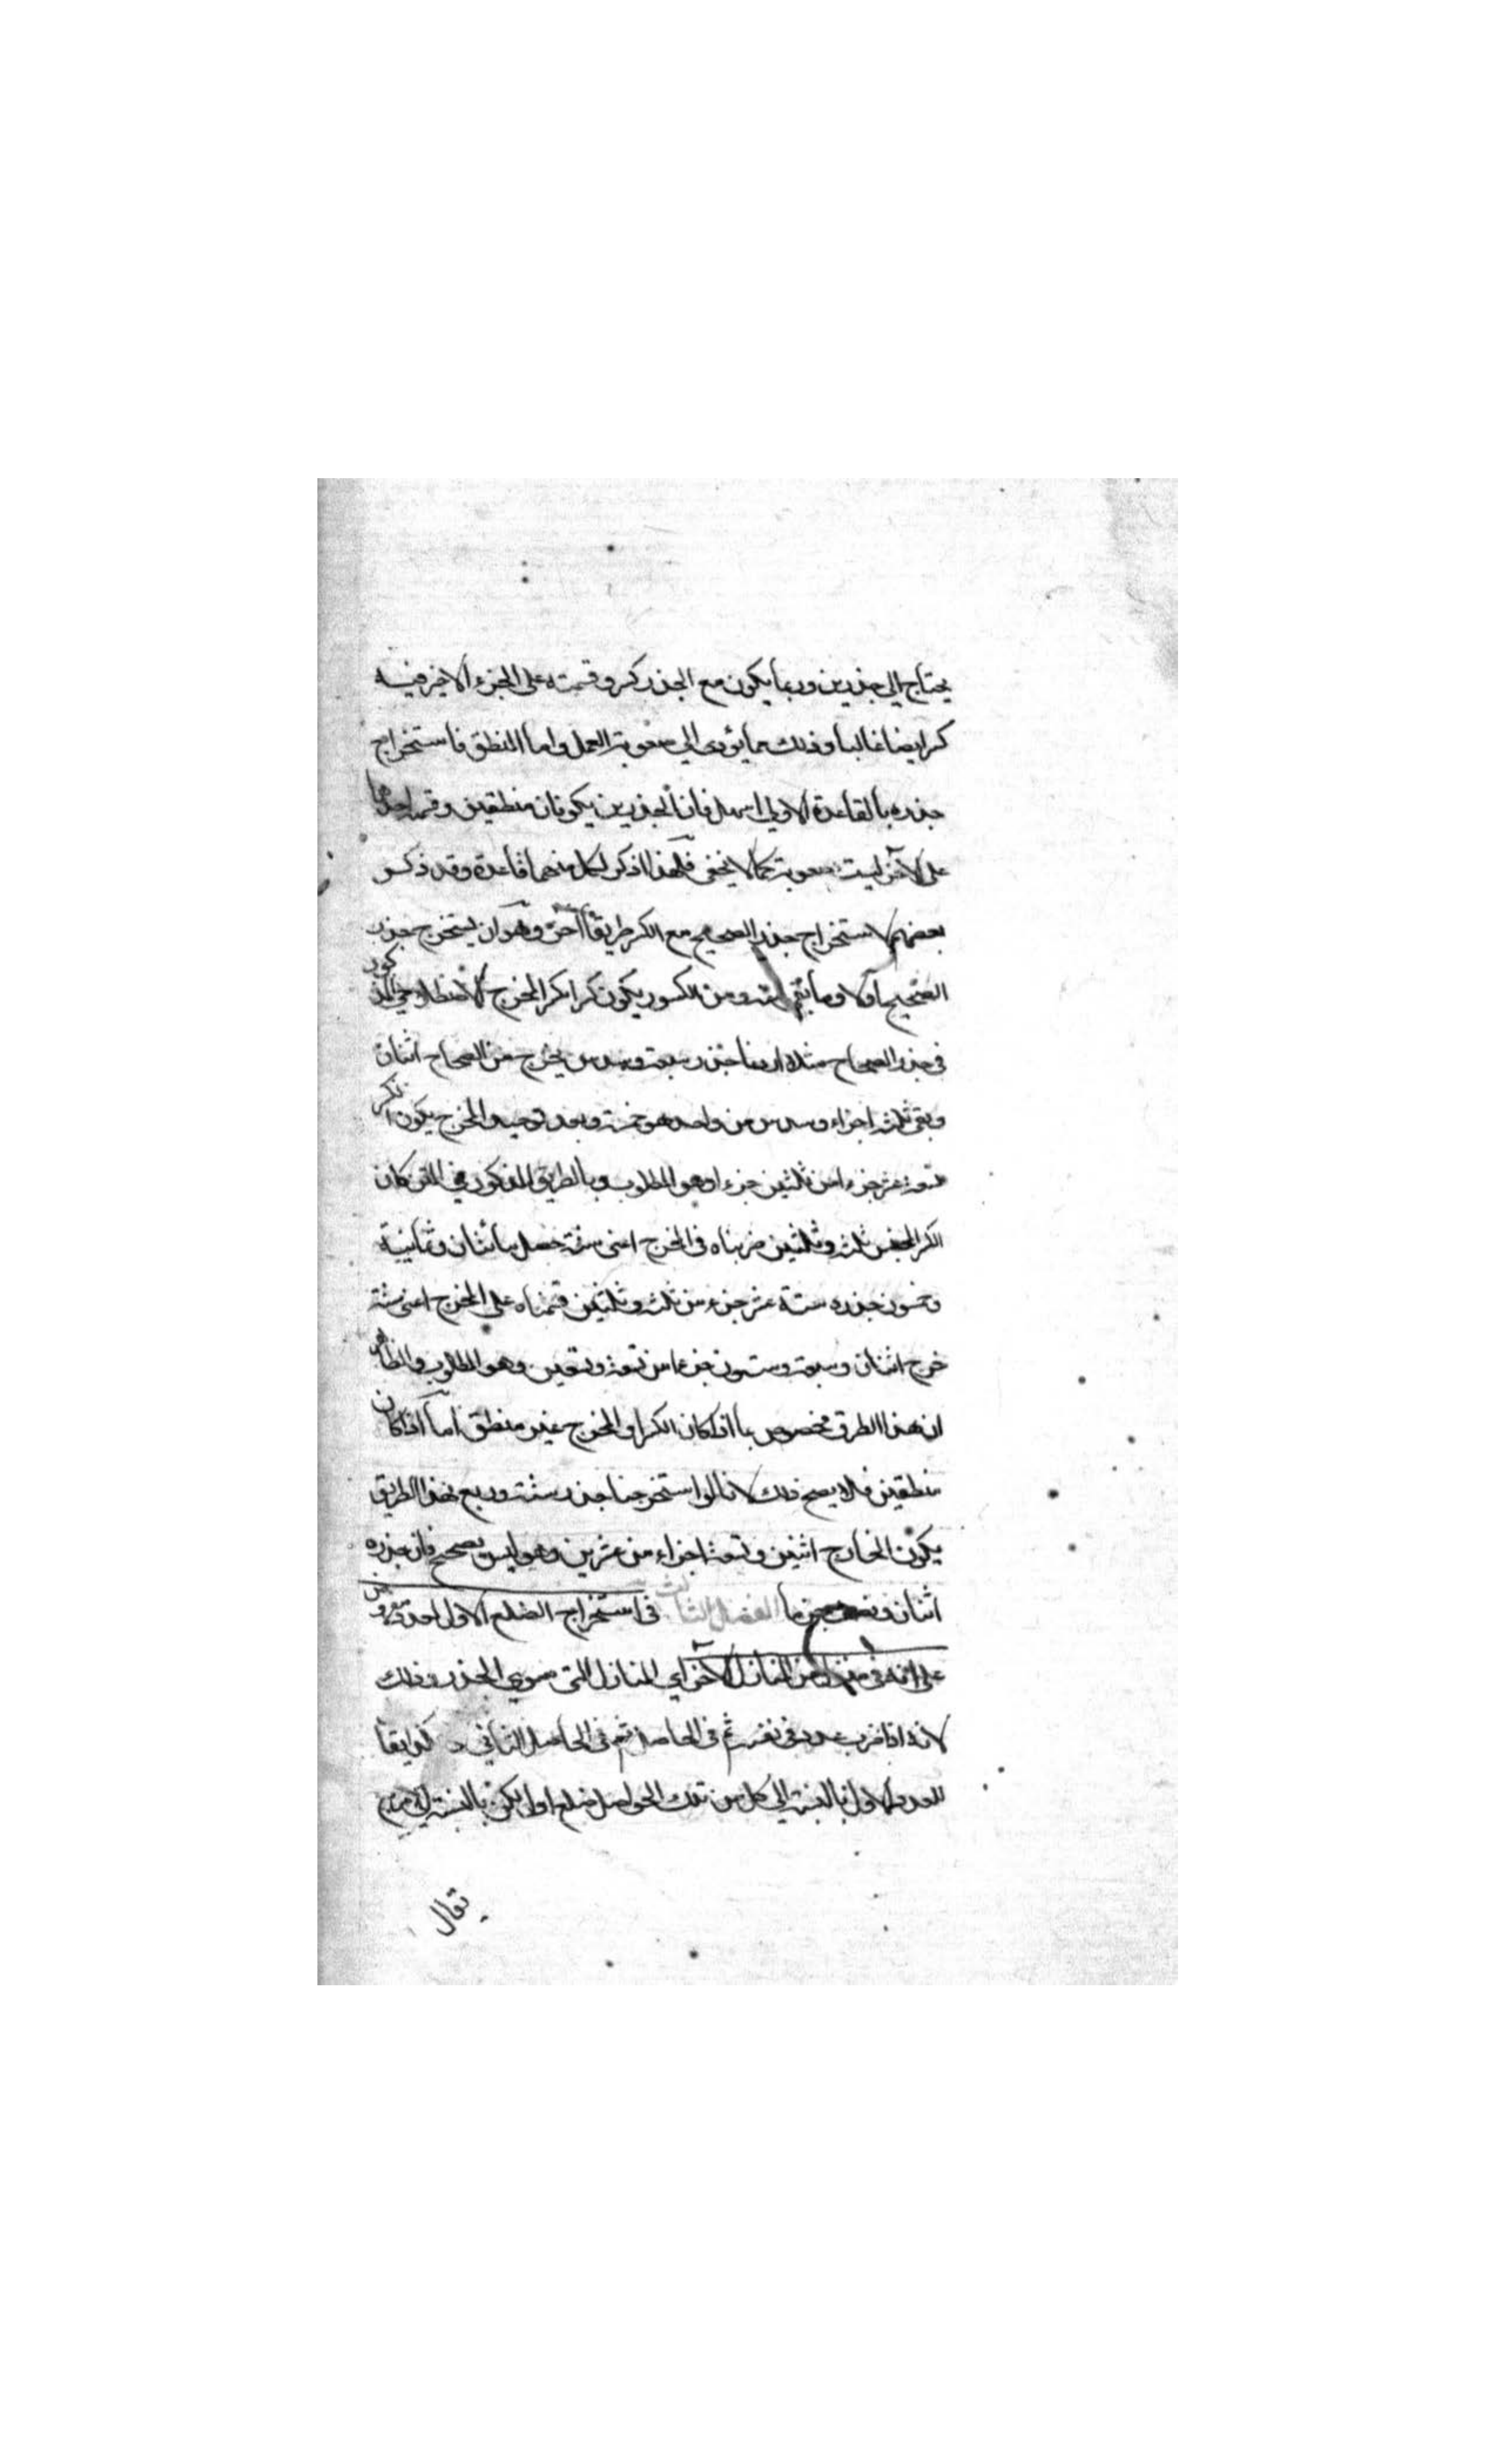 يحتاج الي جذرين وربما يكون مع الجذر كسر وقسمته على الجزء الاخير فيه
كسر ايضا غالبا وذلك مما يؤدى الي صعوبة العمل واما المنطق فاستخراج
جذره بالقاعدة الاولي اسهل فان الجذرين يكونان منطقين وقسمة احدهما
على الآخر ليست بصعوبة كما لا يخفى فلهذا ذكر لكل منهما قاعدة وقد ذكر
بعضهم لاستخراج جذر الصحيح مع الكسر طريقا آخر وهو ان يستخرج جذر
الصحيح اولا وما بقى منه ومن الكسور يكون كسرا كسر المخرج المذكور
فى جذر الصحاح مثلا اردنا جذر سبعة وسدس يخرج من الصحاح اثنان
وبقى ثلثة اجزاء وسدس من واحد هو خمسة وبعد توحيد المخرج يكون الكسر
تسعة عشر جزءا من ثلثين جزءا وهو المطلوب وبالطريق المذكور في المتن كان
الكسر المجنس ثلثة وثلثين ضربناه فى المخرج اعنى ستة حصل مائتان وثمانية
وخمسون جذره ستة عشر جزء من ثلثة وثلثين قسمناه على المخرج اعنى ستة
خرج اثنان وسبعة وستون جزءا من تسعة وتسعين وهو المطلوب والظاهر
ان هذا الطرق مخصوص بما اذا كان الكسر او المخرج غير منطق اما اذا كان
منطقين فلا يصح ذلك لانا لو استخرجنا جذر ستة وربع بهذا الطريق
يكون الخارج اثنين وتسعة اجزاء من عشرين وهو ليس بصحيح فان جذره
اثنان ونصف الفصل الثالث فى استخراج الضلع الاول لعدد مفروض
على انه فى منزلة من المنازل الآخر اي المنازل التى سوى الجذر وذلك
لانه اذا ضرب عدد فى نفسه ثم فى الحاصل ثم فى الحاصل الثاني
للعدد الاول بالنسبة الى كل من تلك الحواصل ضلع اول لكن بالنسبة الى
تقال